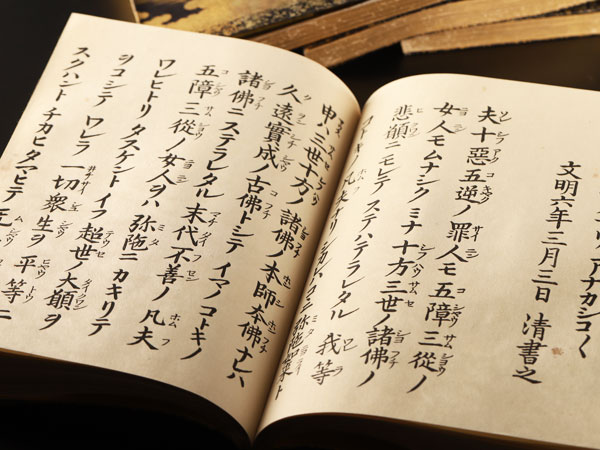 アナカシコ〱
文明六年三月三日 清書之
夫十惡五逆ノ罪人モ五障三從ノ
女人モムナシクミナ十方三世ノ諸佛ノ
悲願ニモレテステハテラレタル我等
コトキノ凡夫ナリ 弥陀如來ト
申ハ三世十方ノ諸佛ノ本師本佛ナレハ
久遠實成ノ古佛トシテイマノコトキノ
諸佛ニステラレタル末代不善ノ凡夫
五障三從ノ女人ヲハ弥陁ニカキリテ
ワレヒトリタスケントイフ超世ノ大願ヲ
ヲコシテワレラ一切衆生ヲ平等ニ
スクハントチカヒタマヒテ无